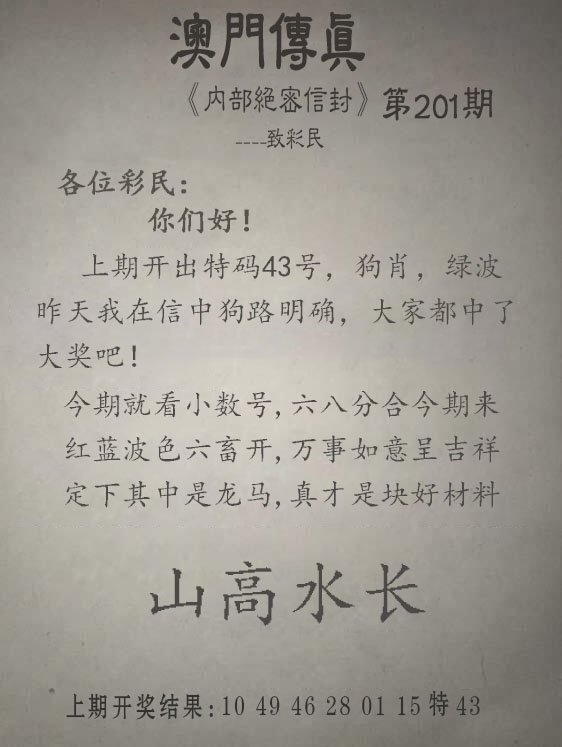 澳門傳真
《内部絕密信封》第201期
----致彩民
各位彩民：
你们好！
上期开出特码43号，狗肖，绿波
昨天我在信中狗路明确，大家都中了
大奖吧！
今期就看小数号,六八分合今期来
红蓝波色六畜开,万事如意呈吉祥
定下其中是龙马,真才是块好材料
山高水长
上期开奖结果:10 49 46 28 01 15 特 43